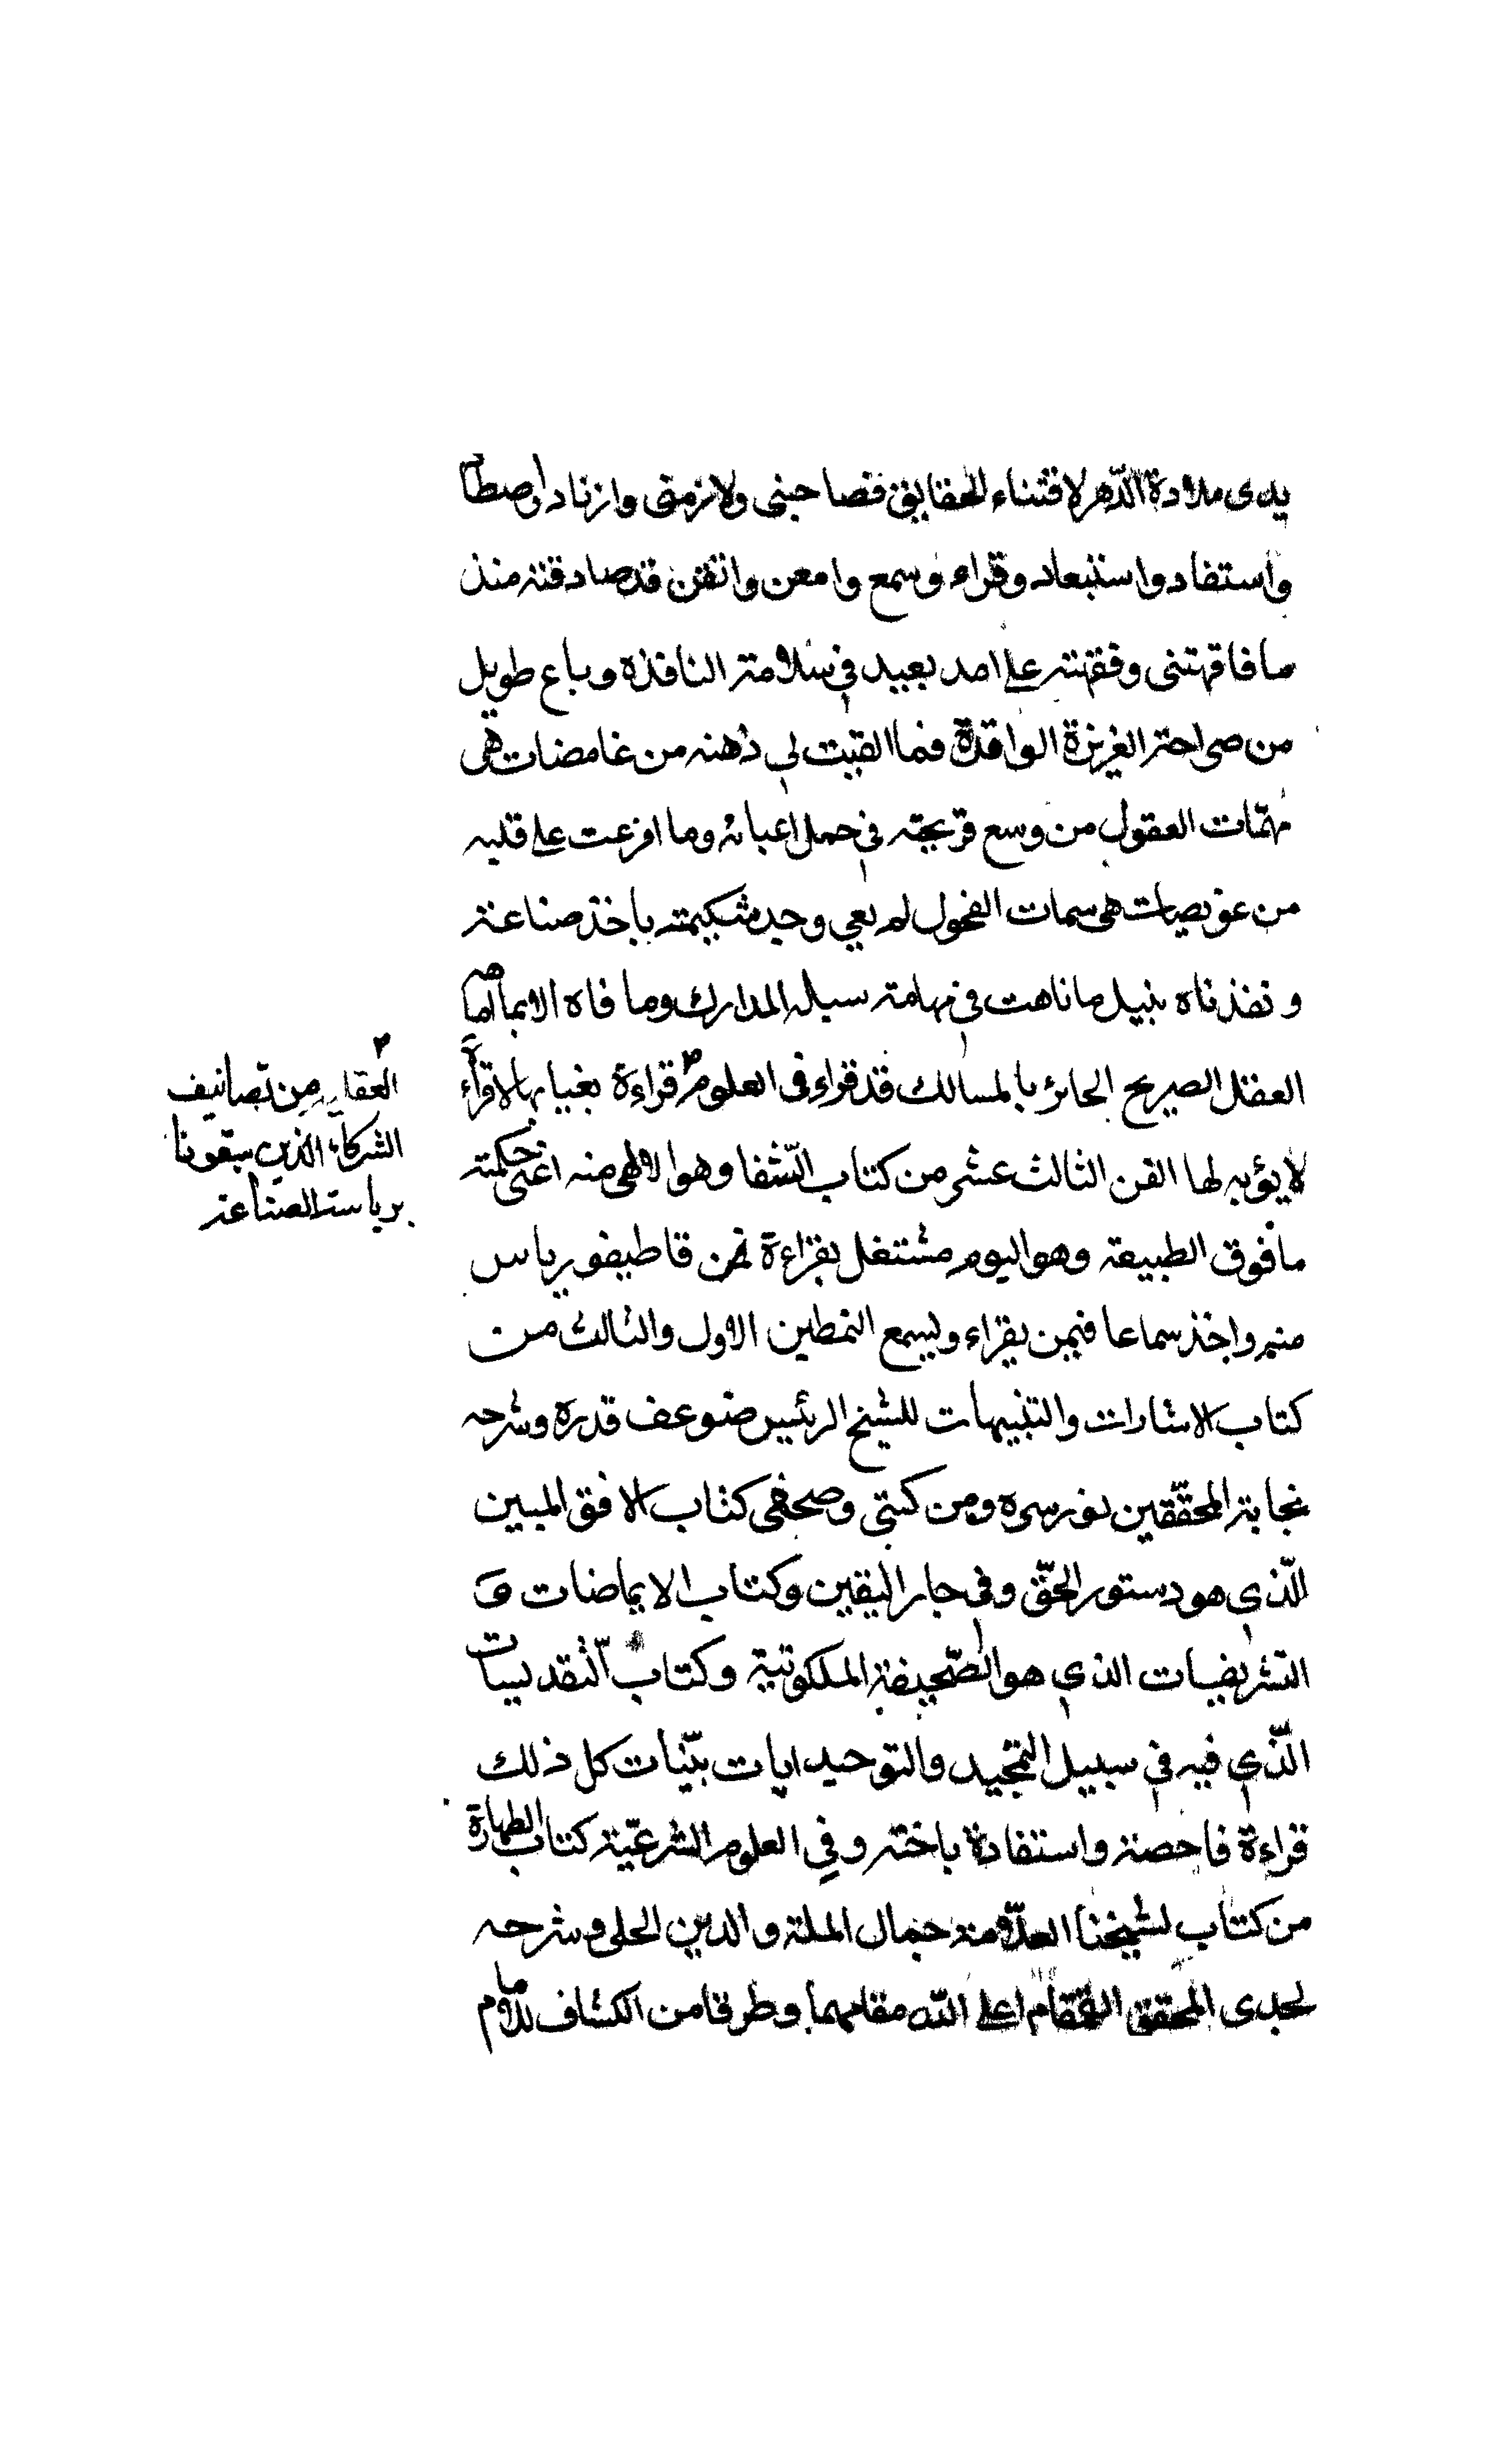 يدى ملاوة الدّهر لاقتناء الحقايق فصاحبنى ولازمنى وازناد واصطا
واستفاد واستبعاد وقراء وسمع وامعن واتقن قد صادفته منذ
ما فاقهتنى وفقهته على امد بعيد فى سلامته النافذه وباع طويل
من صراحته الغريزة الواقدة فما القيت لى ذهنه من غامضات هى
مهمّات العقول من وسع قريحته فى حمل اعبائه وما افرغت على قلبه
من عويصات هى سمات الفحول لم يعى وجد شكيمته باخذ صناعته
ونفذناه بنيل ما تاهت فى مهامته سبيله المدارك وما فاه الا بما امضاه
العقل الصريح الحائر بالمسالك قد قراء فى العلوم قراءة يعبا بها لا قراءة
لا يؤبه لها الفن الثالث عشر من كتاب الشّفا وهو الالهى منه اعنى حكمته
ما فوق الطبيعة وهو اليوم مشتغل بقراءة فن قاطيغورياس
منه واخذ سماعا فيمن يقراء ويسمع النمطين الاول والثالث من
كتاب الاشارات والتنبيهات للشيخ الرئيس ضوعف قدره وشرحه
نجابة المحقّقين نور سره ومن كتبى وصحفى كتاب الافق المبين
الّذى هو دستور الحقّ وفرجار اليقين وكتاب الايماضات و
التشريفات الذى هو الصّحيفة الملكوتية وكتاب التّقديسات
الّذى فيه فى سبيل التمجيد والتوحيد ايات بيّنات كل ذلك
قراءة فاحصة واستفادة باحثة وفى العلوم الشرعيّة كتاب الطهارة
من كتاب لشيخنا العلّامة جمال الملة والدين الحلى وشرحه
لجدى المحقق القمقام اعلى اللّه مقامهما وطرفا من الكشاف للامام
العقلية من تصانيف
الشركاء الذين سبقونا
برياسة الصناعة